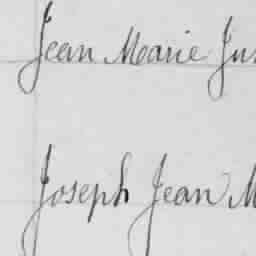 Jean Marie Jus
Joseph Jean M